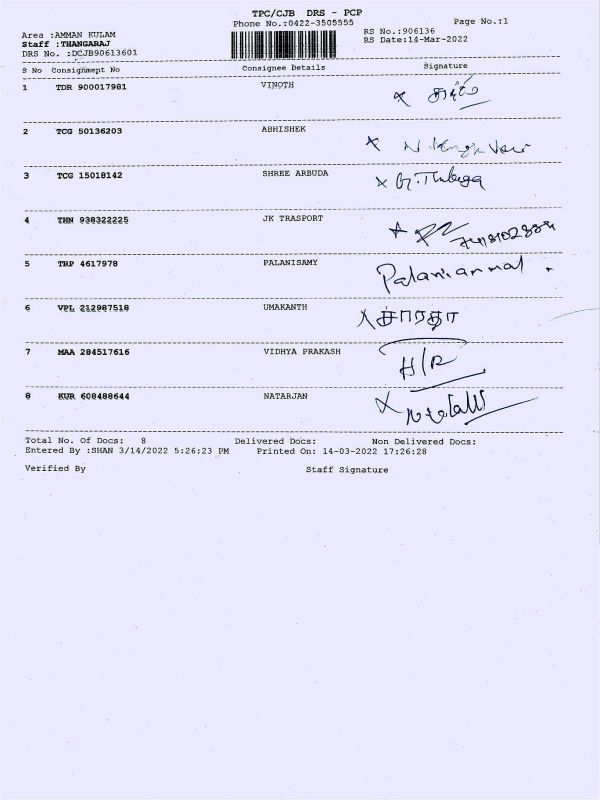 TPC/CJB DRS - PCP
Phone No.:0422-3505555 Page No.:1
Area :AMMAN KULAM RS No.:906136
Staff :THANGARAJ RS Date:14-Mar-2022
DRS No. :DCJB90613601
S No Consignment No Consignee Details Signature
1 TDR 900017981 VINOTH
2 TCG 50136203 ABHISHEK
3 TCG 15018142 SHREE ARBUDA
4 THN 938322225 JK TRASPORT
5 TRP 4617978 PALANISAMY Palaniammal
6 VPL 212987518 UMAKANTH சாரதா
7 MAA 284517616 VIDHYA PRAKASH H/R
8 KUR 608488644 NATARJAN
Total No. Of Docs: 8 Delivered Docs: Non Delivered Docs:
Entered By :SHAN 3/14/2022 5:26:23 PM Printed On: 14-03-2022 17:26:28
Verified By Staff Signature